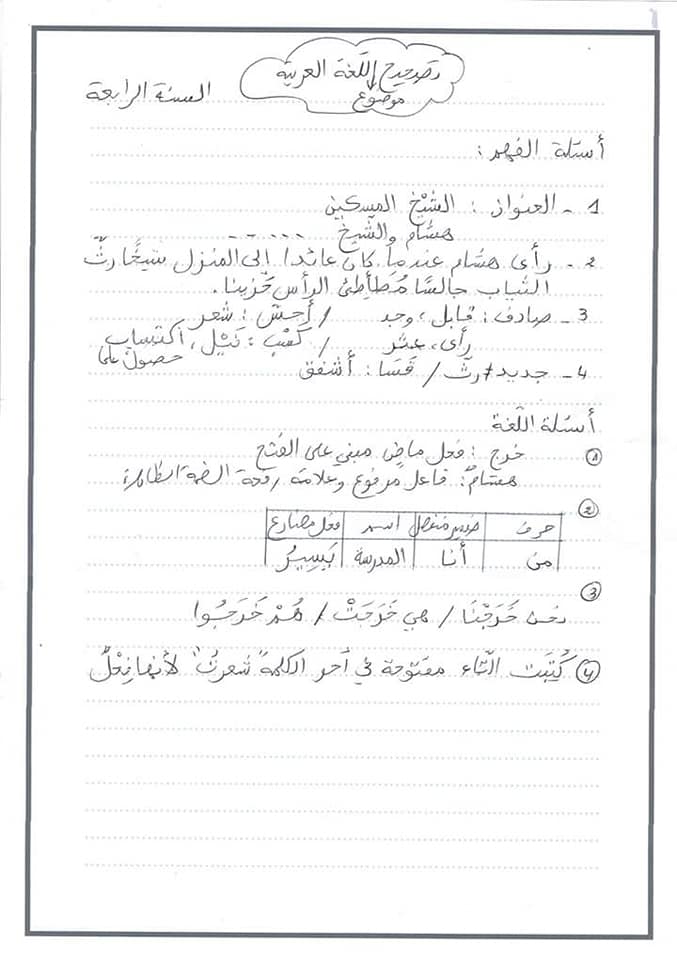 تصحيح اللّغة العربية
موضوع
السنة الرابعة
أسئلة الفهم :
1 - العنوان : الشيْخ المسكين
هشام والشّيخ .......
2 - رأى هشام عندما كان عائدا إلى المنزل شيخًا رثّ
الثياب جالسًا مُطَأطِئ الرأس حَزينا.
3 - صادف : قابل ، وجد / أحسّ : شعر
رأى، عثر / كَسْب : نَيْل، اكتساب
حصول على
4 - جديد ≠ رثّ / قَسَا : أشفق
أسئلة اللّغة
① خرج : فعل ماضٍ مبني على الفتح
هشامٌ : فاعل مرفوع وعلامة رفعه الضمة الظاهرة
②
حرف | ضمير منفصل | اسم | فعل مضارع
من | أنا | المدرسة | يَسِيرُ
③
نحن خَرَجْنَا / هي خَرَجَتْ / هُمْ خَرَجُوا
④ كُتِبَت التّاء مفتوحة في آخر الكلمة "شعرت" لأنها فِعْلٌ